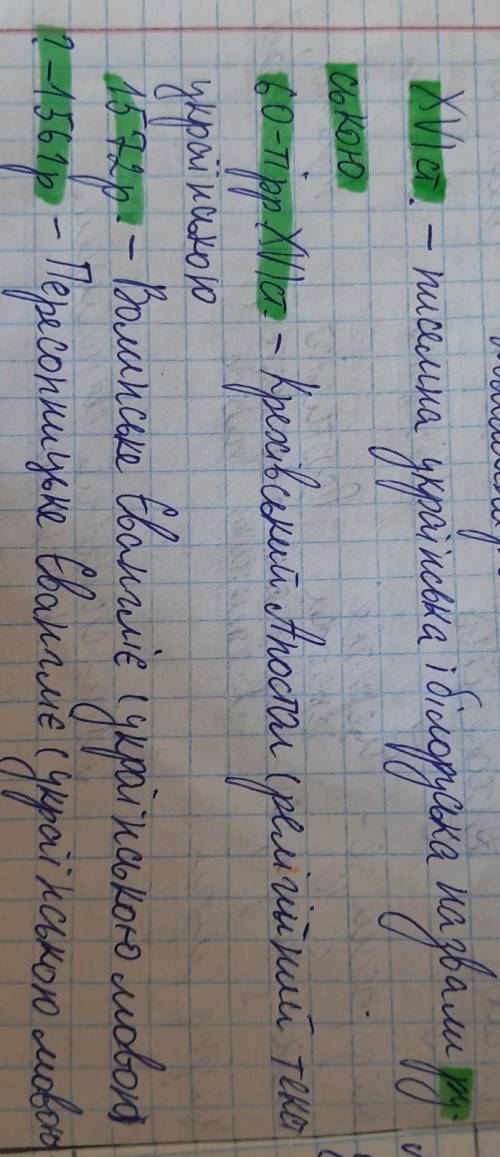 XVI ст. – писемна українська і білоруська назвали ру-
ською
60-ті рр. XVI ст. – Крехівський Апостол (релігійний текс
українською
1572р. – Волинське Євангліє (українською мовою)
? – 1561р – Пересопницьке Євангліє (українською мовою